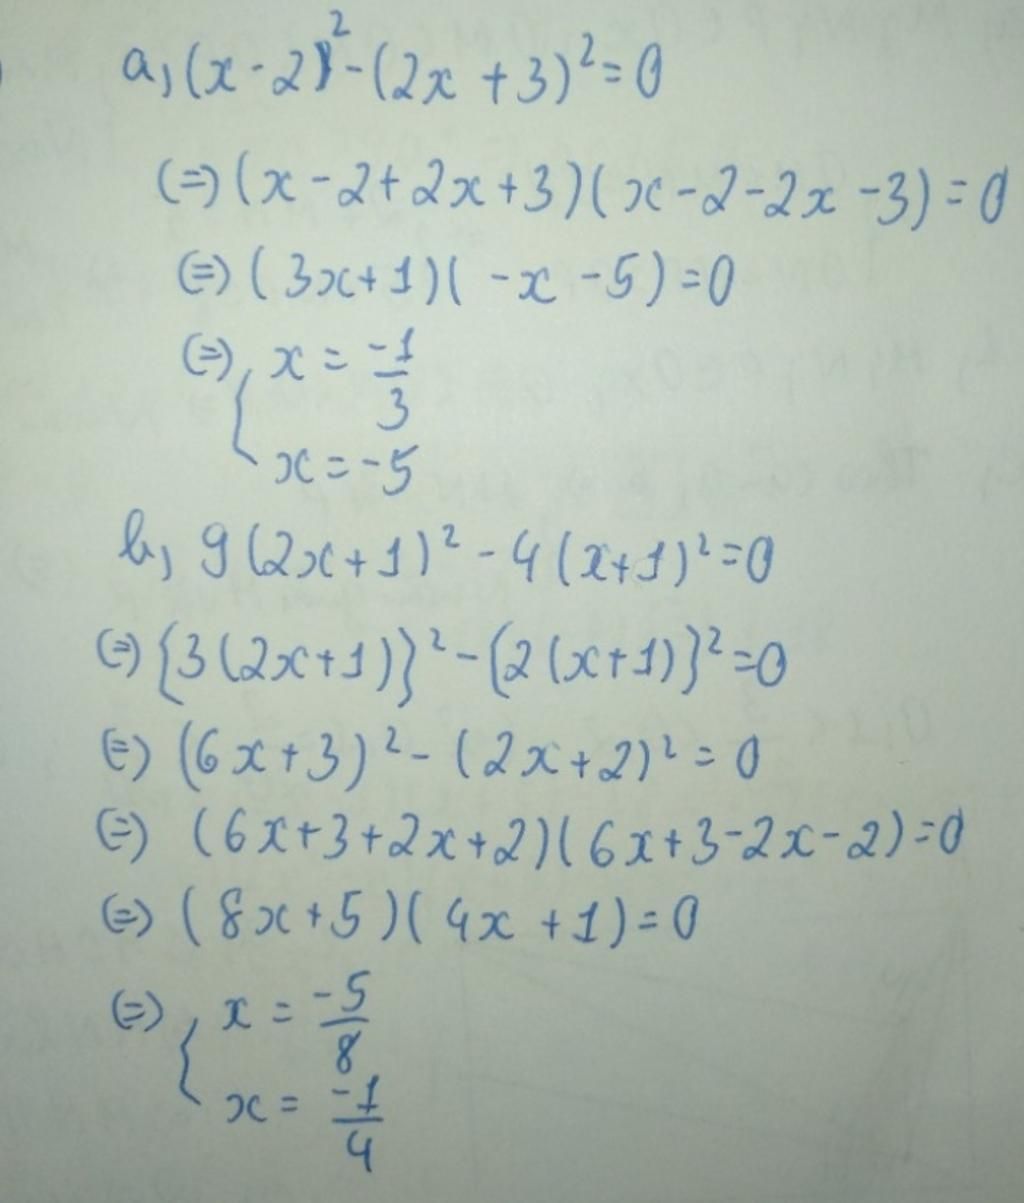 a, (x - 2)² - (2x + 3)² = 0
(=) (x - 2 + 2x + 3)(x - 2 - 2x - 3) = 0
(=) (3x + 1)(-x - 5) = 0
(=) { x = -1/3
x = -5
b, 9(2x + 1)² - 4(x + 1)² = 0
(=) {3(2x + 1)}² - {2(x + 1)}² = 0
(=) (6x + 3)² - (2x + 2)² = 0
(=) (6x + 3 + 2x + 2)(6x + 3 - 2x - 2) = 0
(=) (8x + 5)(4x + 1) = 0
(=) { x = -5/8
x = -1/4